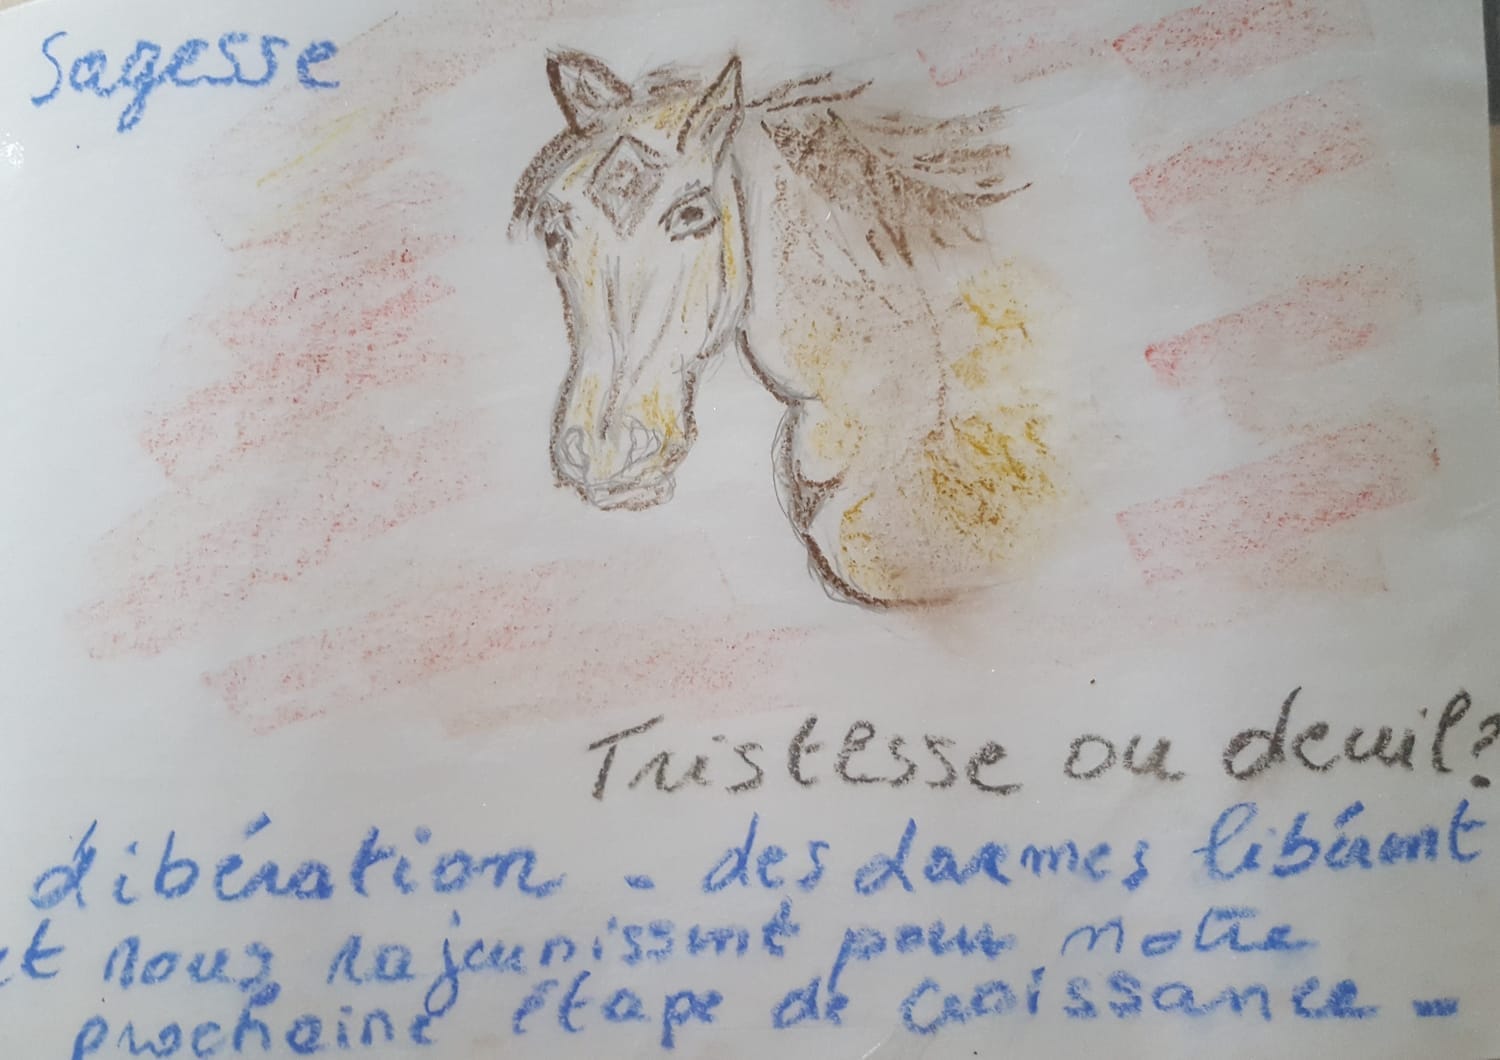 Sagesse
Tristesse ou deuil?
Libération - des larmes libèrent
et nous rajeunissent pour notre
prochaine étape de croissance -